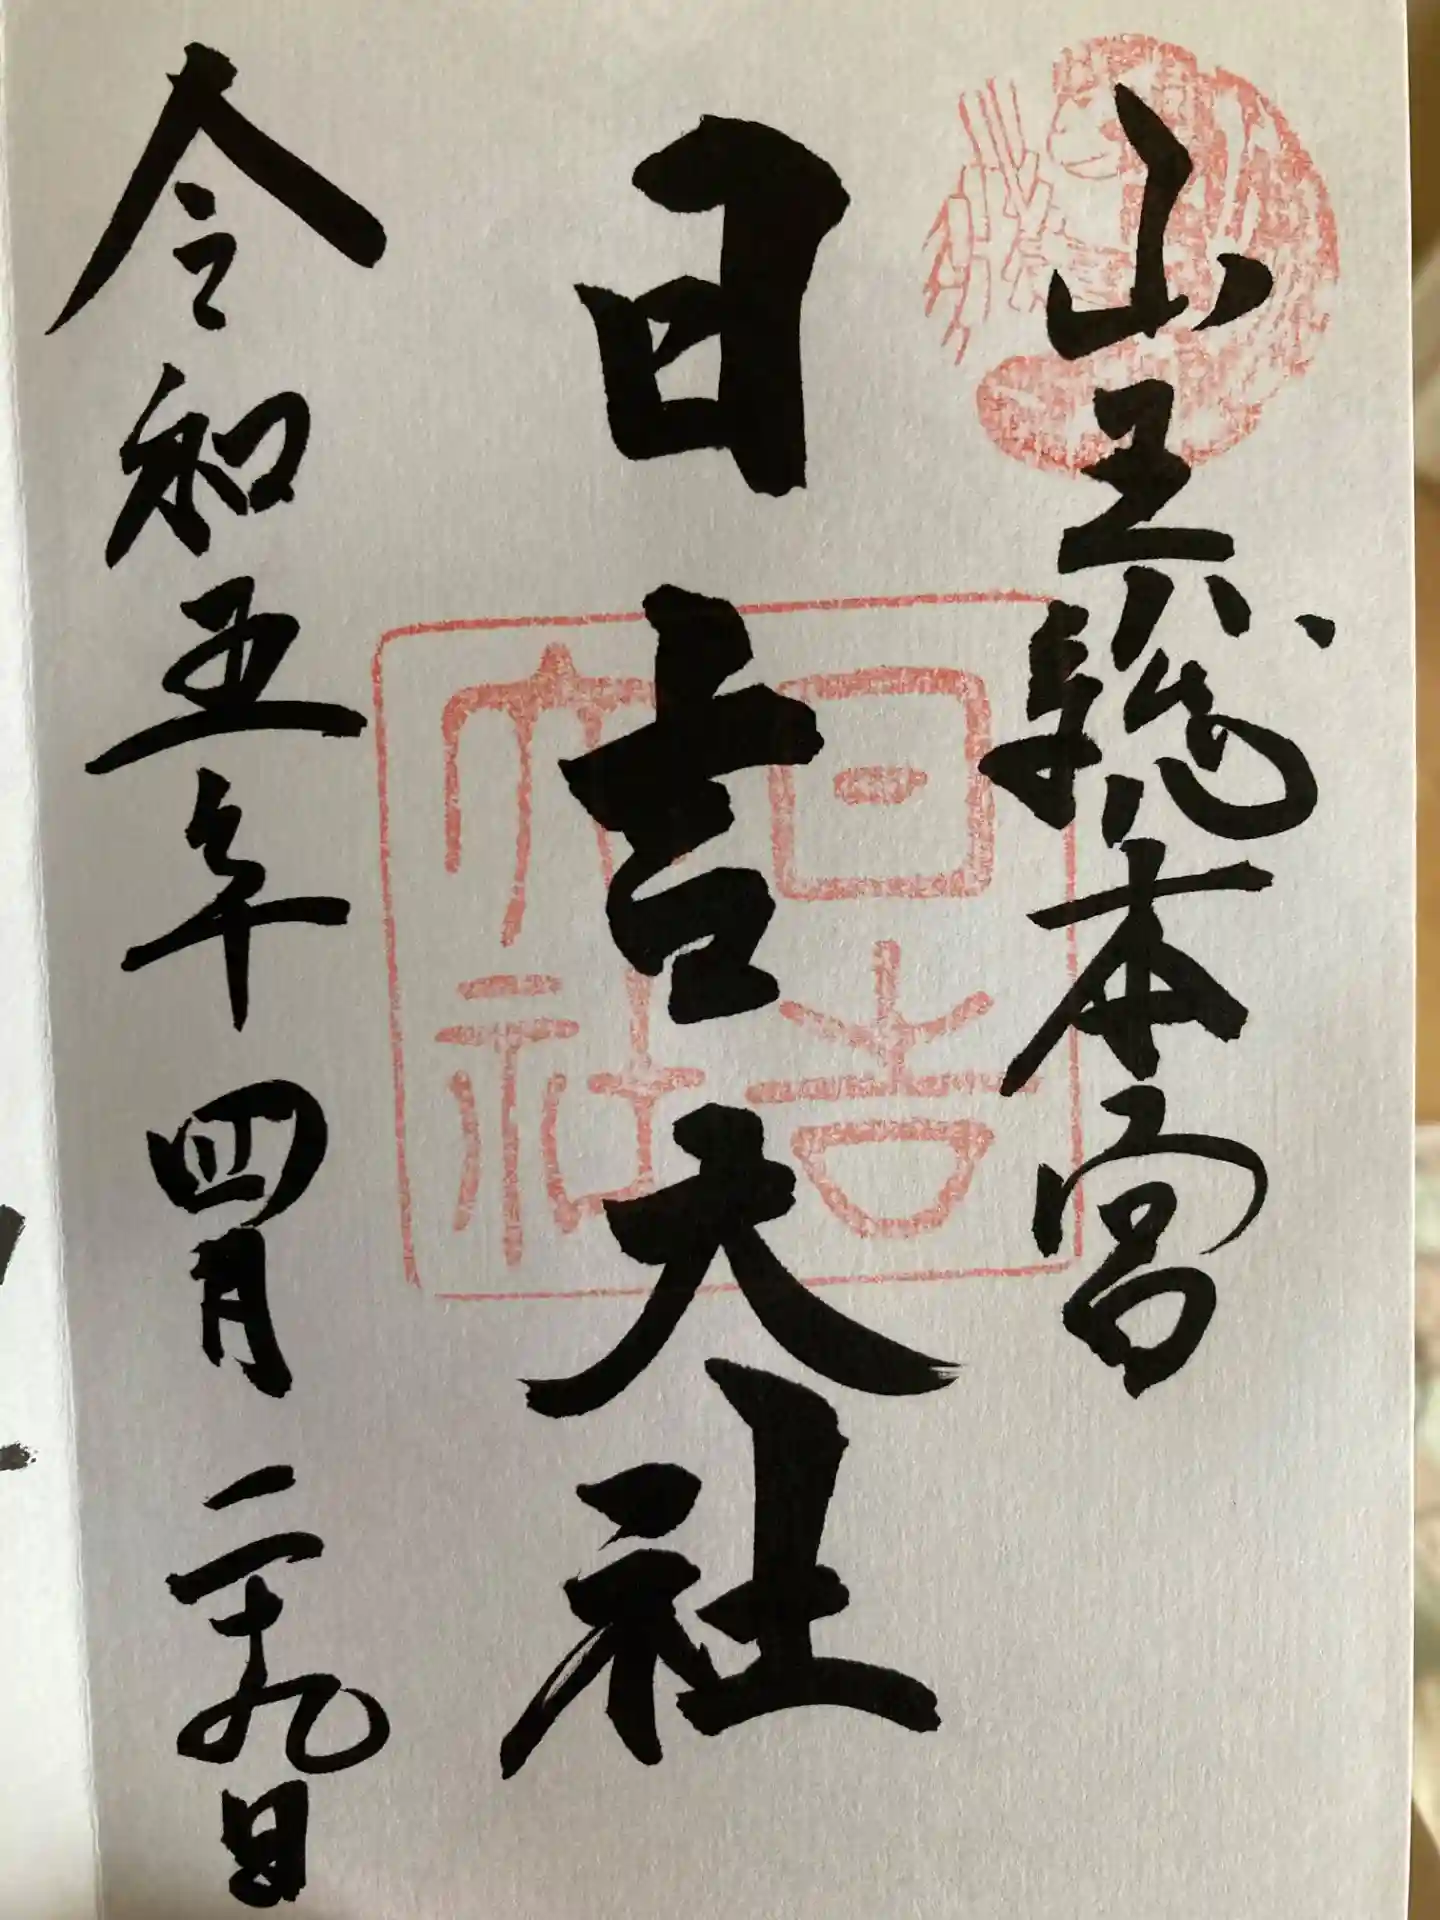 山王総本宮
日吉大社
日吉
大社
令和五年 四月 二十九日